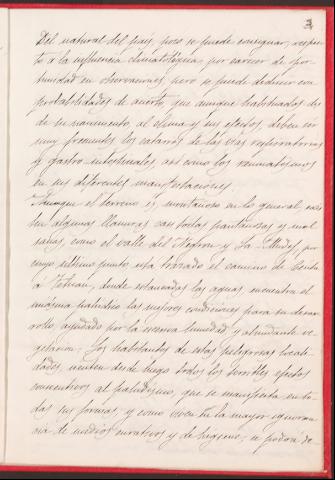 3
Del natural del pais, poco se puede consignar, respec-
to á la influencia climatológica, por carecer de opor-
tunidad en observaciones, pero se puede deducir con
probabilidades de acierto, que aunque habituados des-
de su nacimiento, al clima y sus efectos, deben ser
muy frecuentes los catarros de las vias respiratorias
y gastro-intestinales asi como los reumatismos
en sus diferentes manifestaciones.
Aunque el terreno es montañoso en lo general, exis-
ten algunas llanuras casi todas pantanosas y mal
sanas, como el valle del Negron y La Medik por
cuyo último punto, está trazado el camino de Ceuta
á Tetuan, donde estancadas las aguas, encuentra el
miasma palúdico las mejores condiciones para su desar-
rollo, ayudado por la inmensa humedad y abundante ve-
getacion. Los habitantes de estas peligrosas locali-
dades, sienten desde luego todos los terribles efectos
consecutivos al paludismo, que se manifiesta en to-
das sus formas, y como viven en la mayor ignoran-
cia de medios curativos y de higiene, se podrá de-